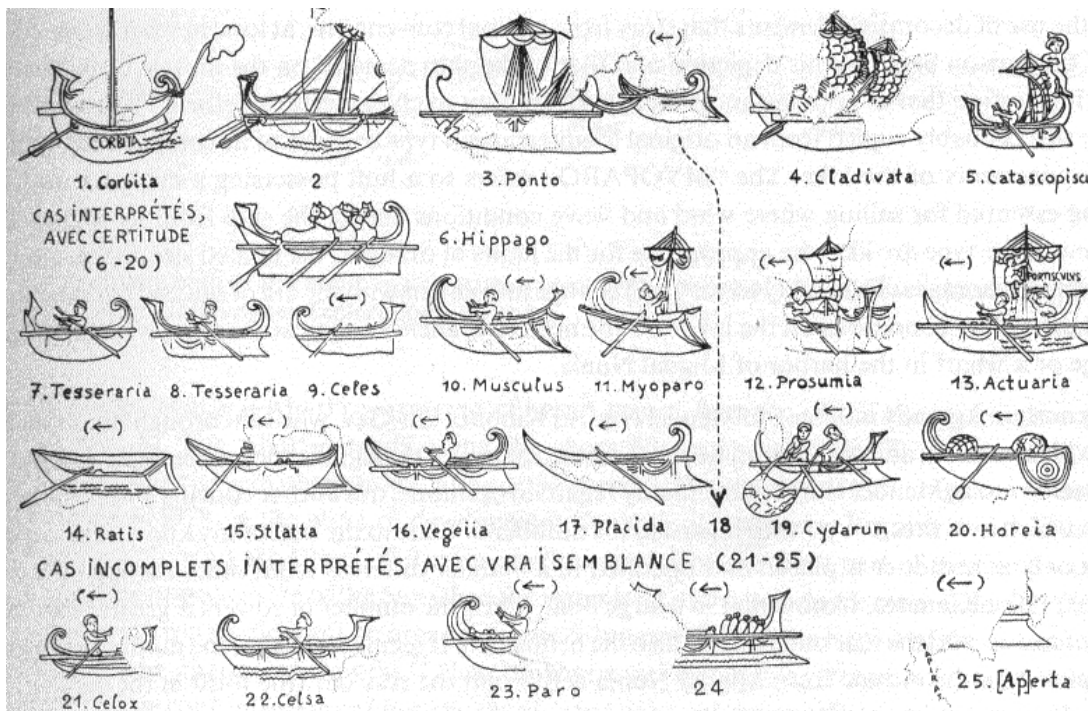 CORBITA
(←)
1. Corbita
2
3. Ponto
4. Cladivata
5.
CAS INTERPRÉTÉS
AVEC CERTITUDE
(6-20)
6. Hippago
(←) (←) (←) (←) (←)
PORTISCVLVS
7. Tesseraria 8. Tesseraria 9. Celes 10. Musculus 11. Myoparo 12. Prosumia 13. Actuaria
(←) (←) (←) (←) (←) (←)
14. Ratis 15. Stlatta 16. Vegeiia 17. Placida 18 19. Cydarum 20. Horeia
CAS INCOMPLETS INTERPRÉTÉS AVEC VRAISEMBLANCE (21-25)
(←) (←) (←) (←)
21. Celox 22. Celsa 23. Paro 24. 25. [Ap]erta